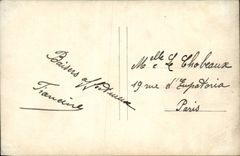 Baisers affectueux
Francine
Melle L. Chobeaux
19 rue d'Eupatoria
Paris